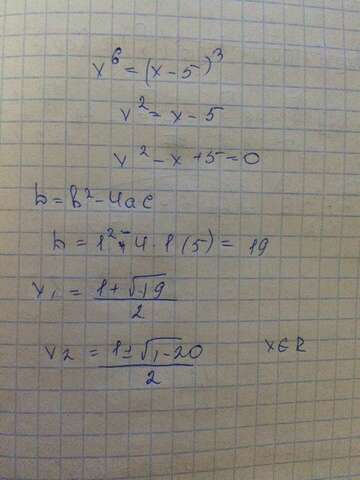 x⁶ = (x - 5)³
x² = x - 5
x² - x + 5 = 0
D = b² - 4ac
D = 1² - 4 · 1 (5) = 19
x₁ = (1 + √-19)/2
x₂ = (1 ± √1-20)/2 x ∈ R